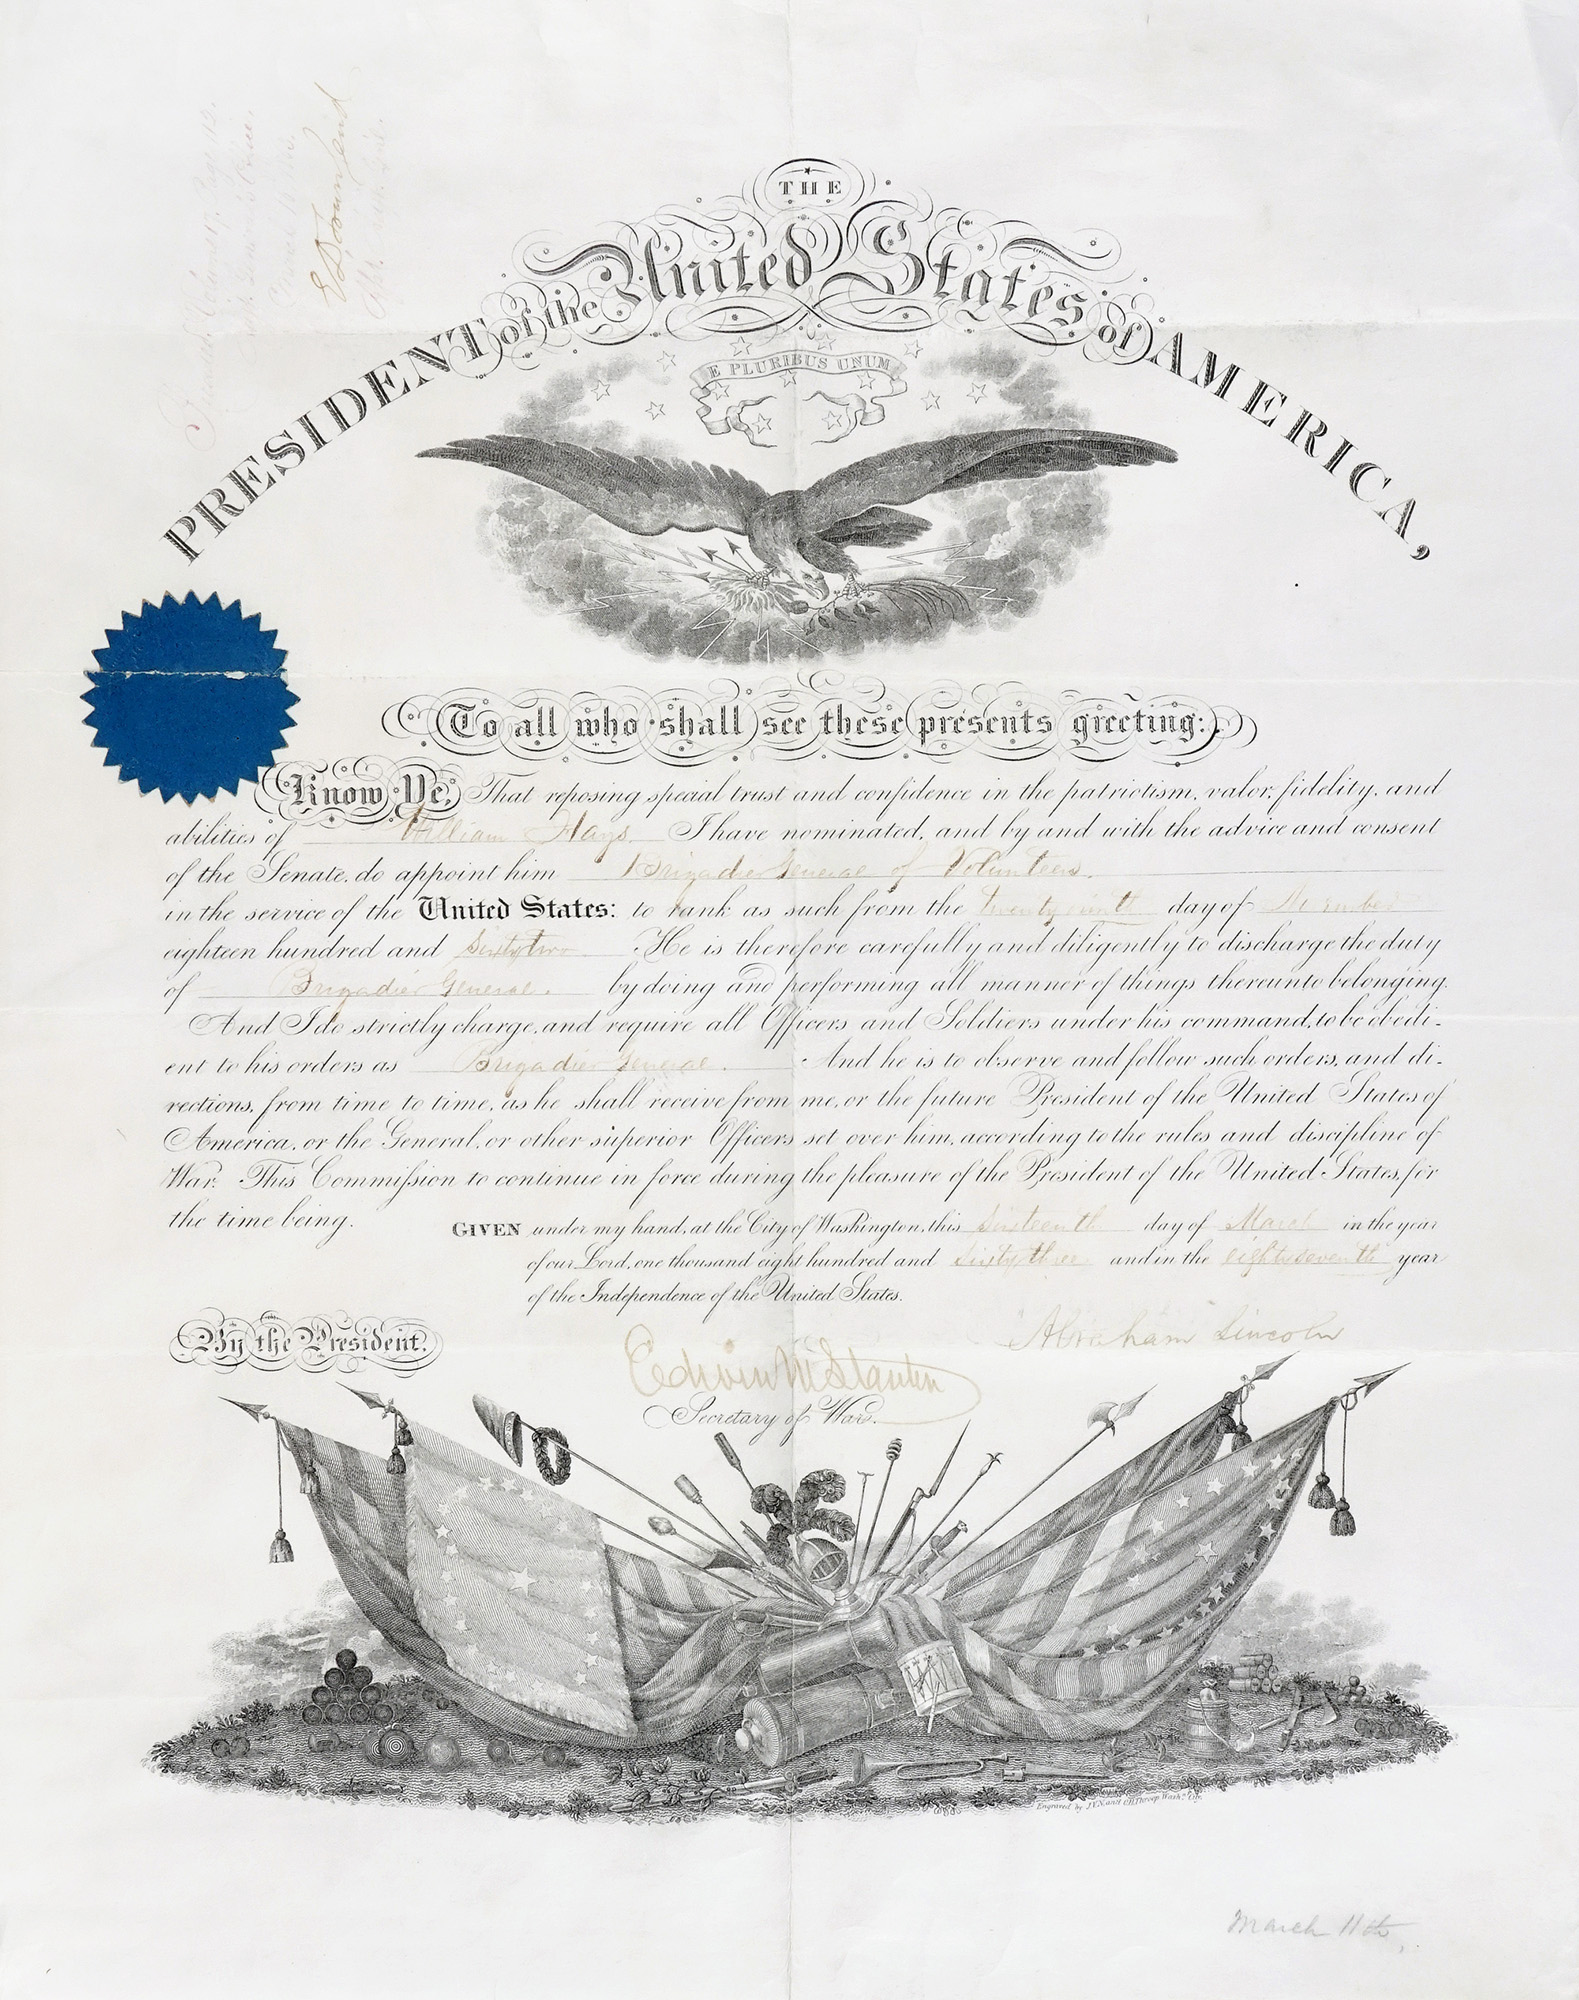 THE
PRESIDENT of the United States of AMERICA,
E PLURIBUS UNUM
E D Townsend
To all who shall see these presents greeting:
Know Ye, That reposing special trust and confidence in the patriotism, valor, fidelity, and
abilities of William Hays I have nominated, and by and with the advice and consent
of the Senate, do appoint him Brigadier General of Volunteers.
in the service of the United States: to rank as such from the twenty ninth day of November
eighteen hundred and Sixty two. He is therefore carefully and diligently to discharge the duty
of Brigadier General. by doing and performing all manner of things thereunto belonging.
And I do strictly charge, and require all Officers and Soldiers under his command, to be obedi-
ent to his orders as Brigadier General. And he is to observe and follow such orders, and di-
rections, from time to time, as he shall receive from me, or the future President of the United States of
America, or the General, or other superior Officers set over him, according to the rules and discipline of
War. This Commission to continue in force during the pleasure of the President of the United States, for
the time being.
GIVEN under my hand, at the City of Washington, this Sixteenth day of March in the year
of our Lord, one thousand eight hundred and Sixty three and in the eighty seventh year
of the Independence of the United States.
By the President.
Abraham Lincoln
Edwin M Stanton
Secretary of War.
Engraved by J.V.N. and O.H. Throop Wash.n City.
March 11th,